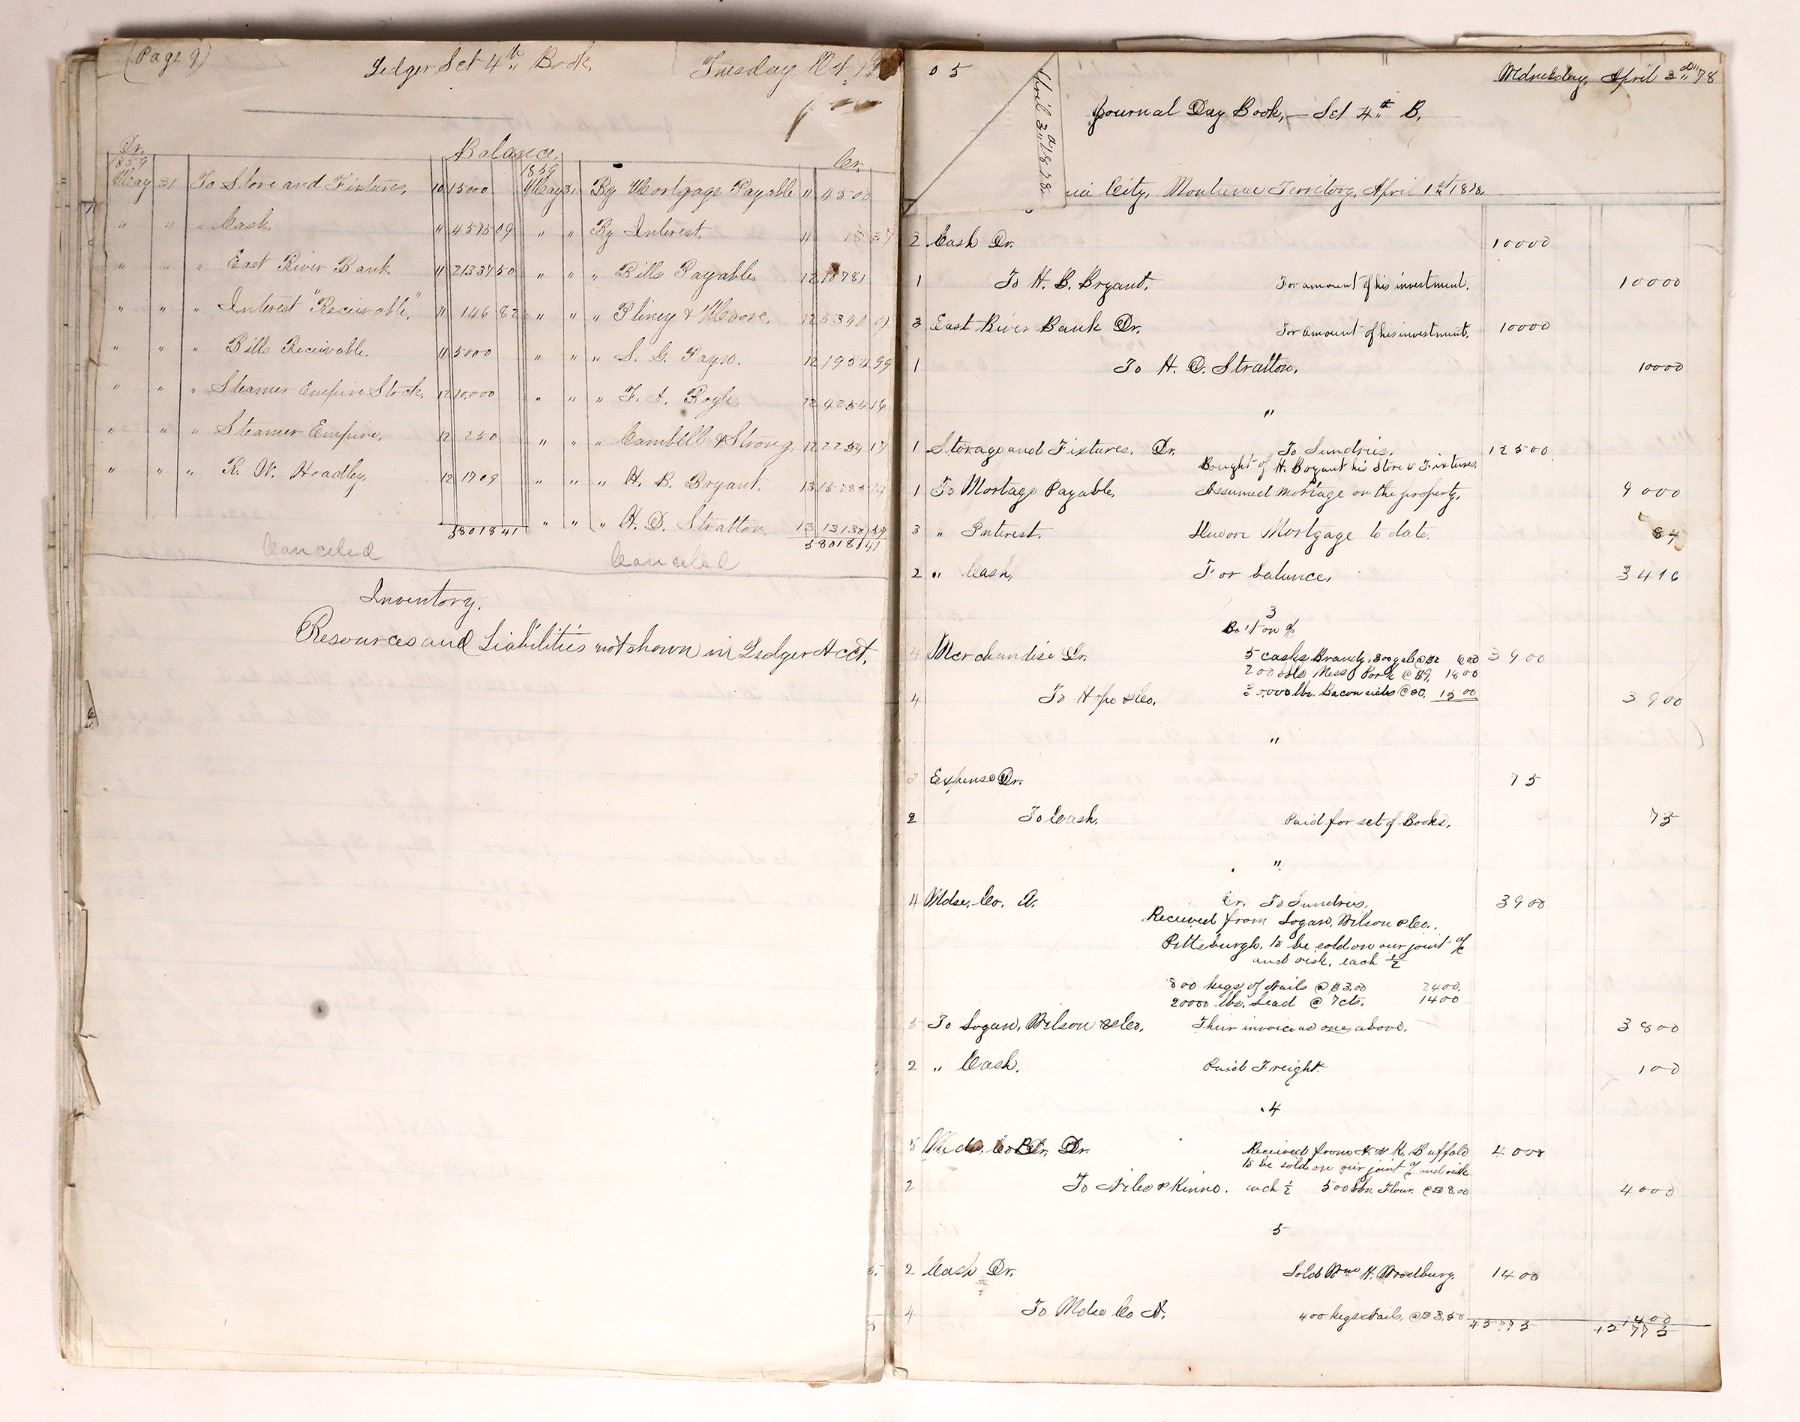 (Page 9)
Ledger Set 4th Book
Tuesday, Oct. 1
Dr.
Balance.
Cr.
1859
1859
May 31 To Store and Fixtures, 10 15000
May 31 By Mortgage Payable " 4500
" " " Cash. " 4575 09
" " By Interest. "
" " " East River Bank " 21337 50
" " " Bills Payable 12
" " " Interest "Receivable", " 146 82
" " " Pliney & Moore. 12 5390 01
" " " Bills Receivable. " 5000
" " " S. G. Payn. 12 1954 99
" " " Steamer Empire Stock, 12 10,000
" " " F. A. Boyle, 12 4254 16
" " " Steamer Empire, 12 250
" " " Cambell & Strong 12 2254 17
" " " R. W. Hoadley, 12 1709
" " " H. B. Bryant. 13
58018 41
" " " H. D. Stratton 13 13130
58018 41
Canceled
Canceled
Inventory.
Resources and Liabilities not shown in Ledger Acct.
05
April 3rd 1878
Wednesday, April 3rd "78
Journal Day Book, — Set 4th B.
City, Montana Territory, April 1st 1878
2 Cash Dr. 10000
1 To H. B. Bryant. For amount of his investment. 10000
3 East River Bank Dr. For amount of his investment. 10000
1 To H. D. Stratton. 10000
"
1 Storage and Fixtures. Dr. To Sundries. 12500
Bought of H. Bryant his Store & Fixtures
1 To Mortage Payable, Assumed mortage on the property. 9000
3 " Interest. Mortgage to date. 84
2 " Cash, For balance, 3416
3
Bo't on %
4 Merchandise Dr. 5 casks Brandy, 300 gals @ $2 600 3900
200 bbls Mess Pork @ $9, 1800
4 To Hope & Co. lbs. Bacon sides 1500 3900
"
3 Expense Dr. 75
2 To Cash. Paid for set of Books. 75
"
4 Mdse. Co. A. Dr. To Sundries. 3900
Received from Logan, Wilson & Co.,
Pittsburgh, to be sold on our joint %
and risk, each ½
800 kegs of Nails @ $3.00 2400.
20000 lbs. Lead @ 7cts. 1400
5 To Logan, Wilson & Co. Their invoice as above. 3800
2 " Cash. Paid Freight. 100
4
5 Mdse. Co B. Dr. Received from N. & K. Buffalo 4000
to be sold on our joint % and risk
2 To Niles & Kinne. each ½ 500 bbl. Flour. @ $8.00 4000
5
2 Cash Dr. Sold Wm H. Woodbury. 1400
4 To Mdse Co A. 400 kegs Nails, @ $3,50 1400
45775 45775